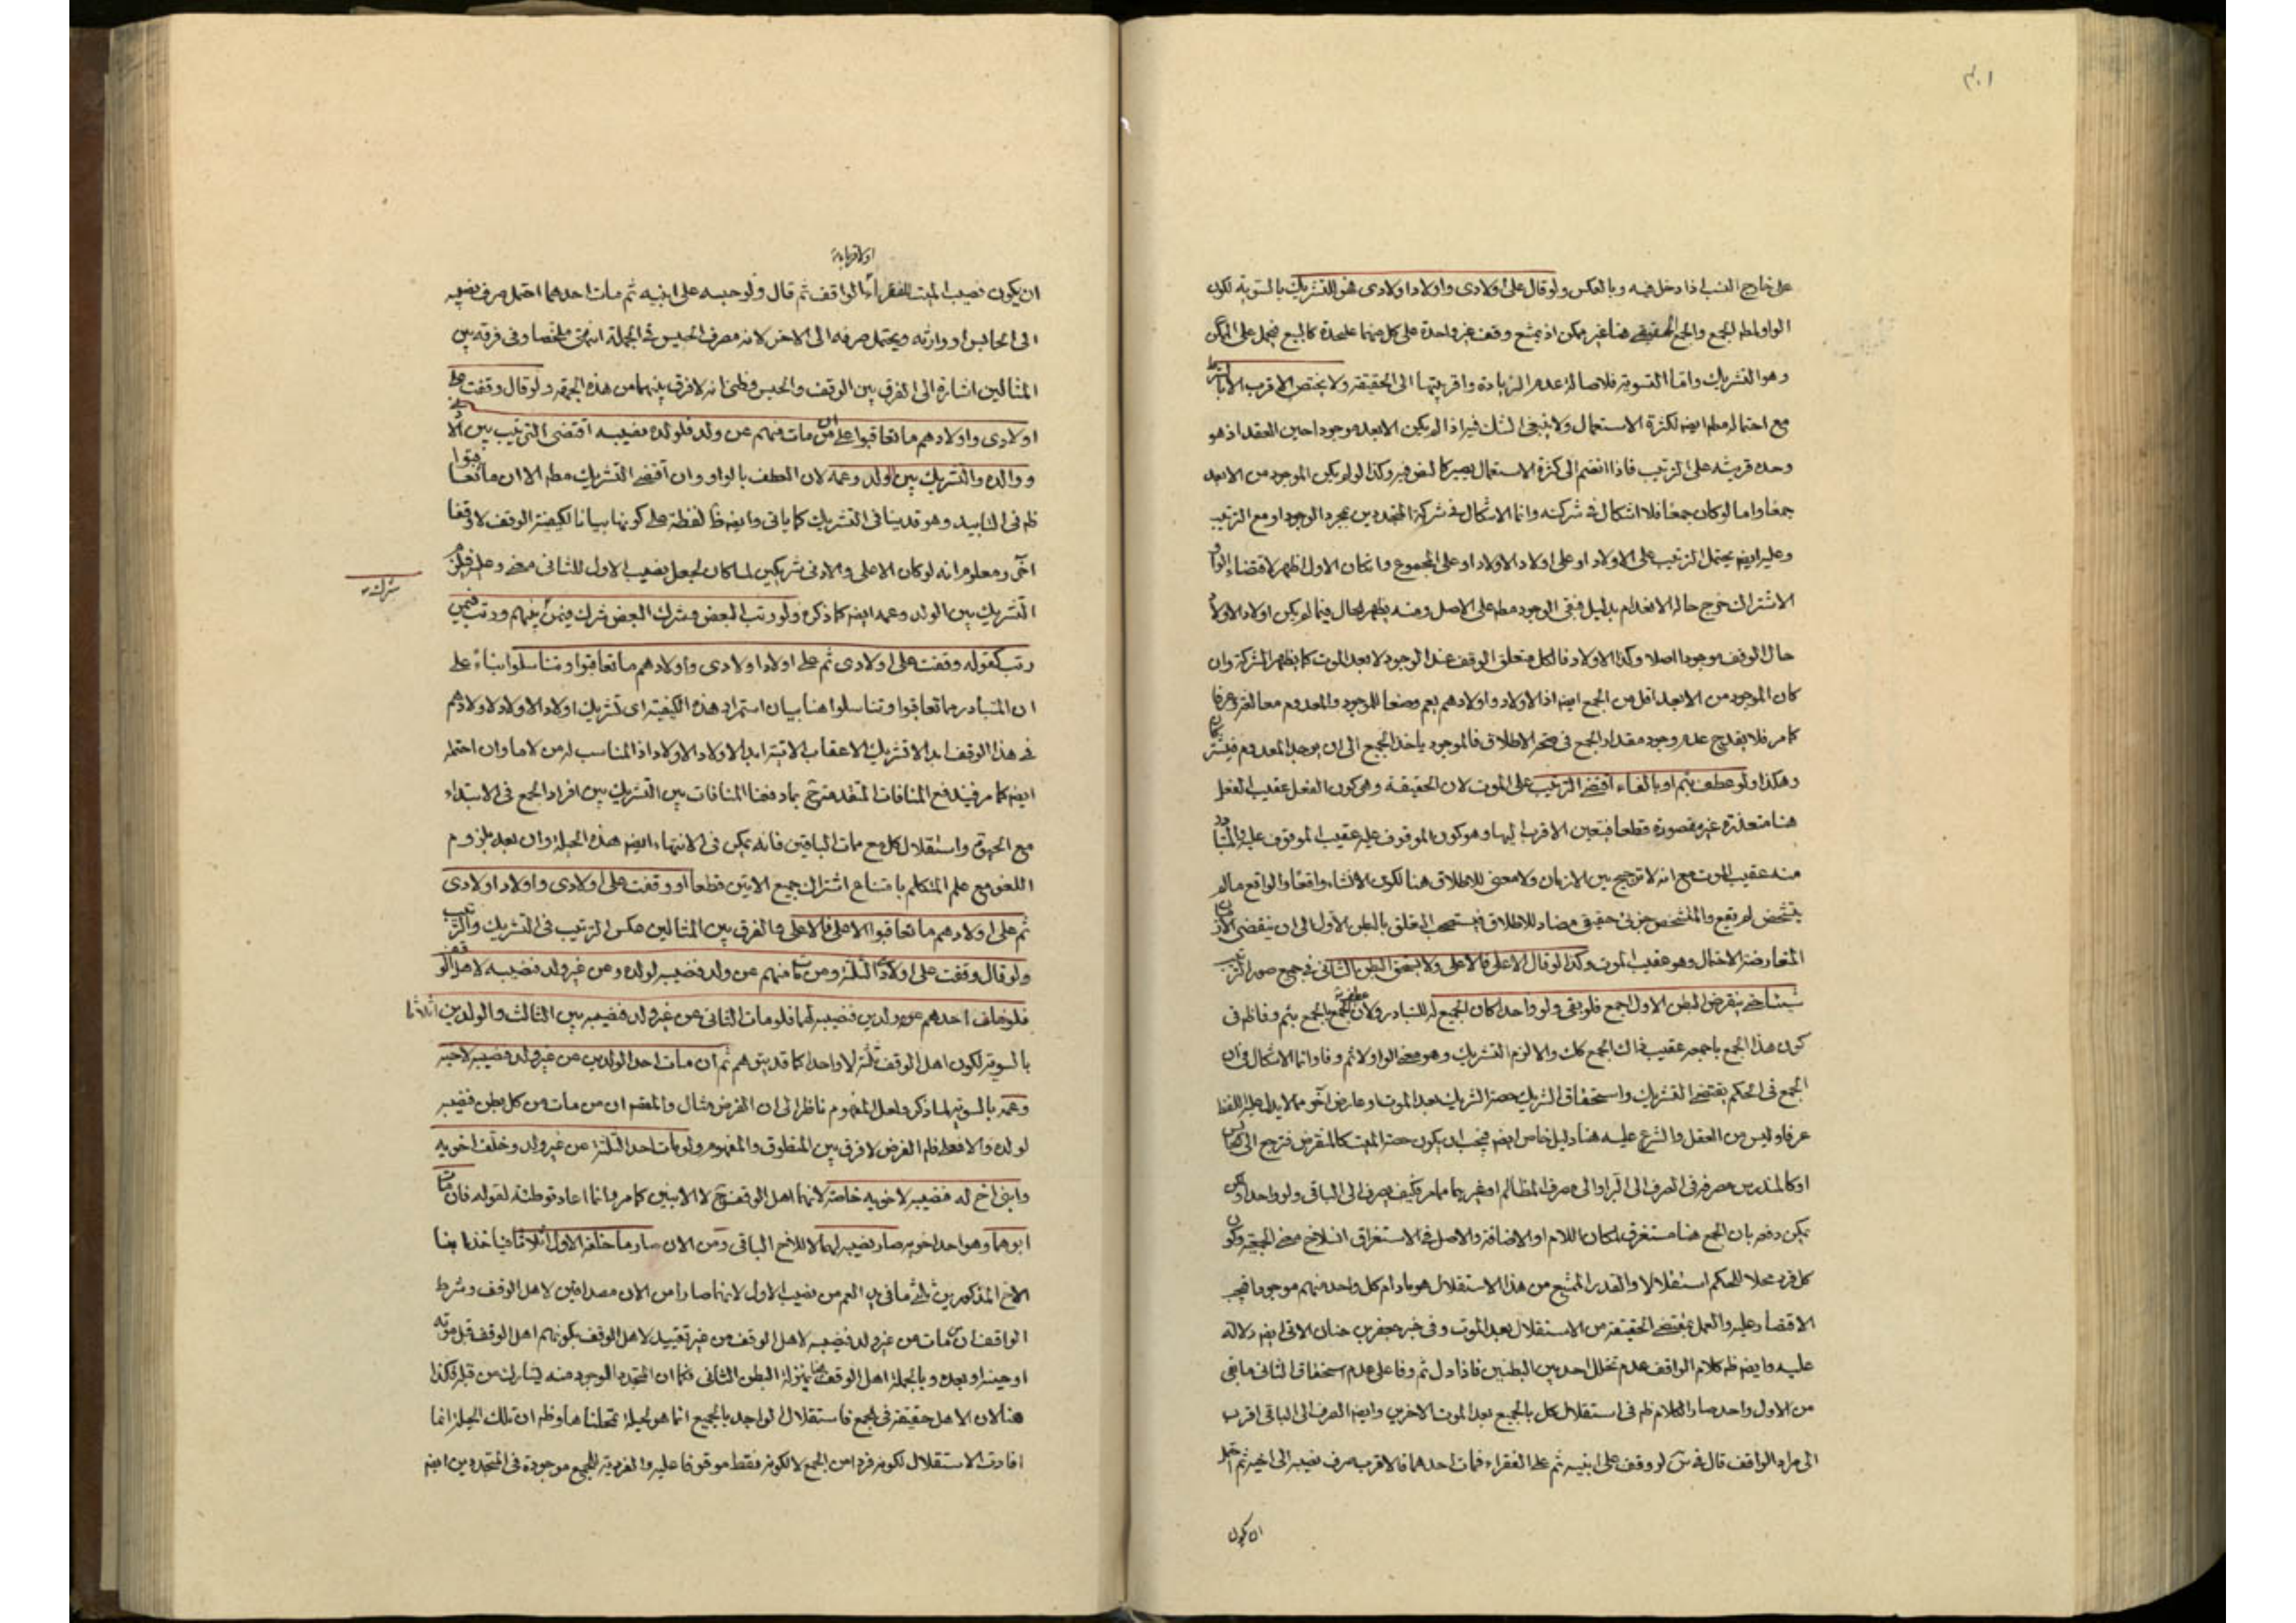 ٣٠١
على خارج النسب اذا دخل فيه وبالعكس ولو قال على اولادى واولاد اولادى فهو للتشريك بالسوية لكون
الواو لمطلق الجمع والجمع الحقيقى هنا غير ممكن اذ يمتنع وقف غير واحدة على كل منهما عليحدة كالبيع فيحمل على الممكن
وهو التشريك واما التسوية فلاصالة عدم الزيادة واقربيتها الى الحقيقة ولا يختص الاقرب الا بالشرط
مع احتماله مطلقا ايضا لكثرة الاستعمال ولا ينبغى الشك فيه اذا لم يكن الابعد موجودا حين العقد اذ هو
وحده قرينة على الترتيب فاذا انضم الى كثرة الاستعمال يصير كالنص فيه وكذا لو لم يكن الموجود من الابعد
جمعا واما لو كان جمعا فلا اشكال فى شركته وانما الاشكال فى شركة المتجددين بمجرد الوجود او مع الترتيب
وعليه ايضا يحتمل الترتيب على الاولاد او على اولاد الاولاد او على المجموع وان كان الاول اظهر لاقتضاء الواو
الاشتراك خرج حالة الانعدام بدليل فبقى الوجود مطلقا على الاصل ومنه يظهر الحال فيما لم يكن اولاد الاولاد
حال الوقف موجودا اصلا وكذا الاولاد فالكل متعلق الوقف عند الوجود لا بعد الموت كما يظهر الشركة وان
كان الموجود من الابعد اقل من الجمع ايضا اذ الاولاد واولادهم يعم وضعا للموجود والمعدوم معا لغة وعرفا
كما مر فلا يقدح عدم وجود مقدار الجمع فى صحة الاطلاق فالموجود ياخذ الجميع الى ان يوجد المعدوم فيشتركان
وهكذا ولو عطف بثم او بالفاء اقتضى الترتيب على الموت لان الحقيقة وهى كون الفعل عقيب الفعل
هنا متعذرة غير مقصورة قطعا فيتعين الاقرب اليها وهو كون الموقوف عليه عقيب الموقوف عليه والمتبادر
منه عقيب الموت مع انه لا ترجيح بين الازمان ولا معنى للاطلاق هنا لكون الانشاء واقعا والواقع ما لم
يتشخص لم يقع والمتشخص جزئى حقيقى مضاد للاطلاق فيستصحب التعلق بالبطن الاول الى ان ينقضى الازمان
المتعارضة الاحتمال وهو عقيب الموت وكذا لو قال الاعلى فالاعلى ولا يستحق البطن الثانى فى جميع صور الترتيب
شيئا حتى ينقرض البطن الاول اجمع فلو بقى ولو واحد كان الجميع له للتبادر ولان عطف الجمع بالجمع بثم وفا ظاهر فى
كون هذا الجمع باجمعه عقيب ذاك الجمع كك والا لزم التشريك وهو معنى الواو لا ثم وفا وانما الاشكال فى ان
الجمع فى الحكم يقتضى التشريك واستحقاق الشريك حصة الشريك بعد الموت او عارض آخر مما لا يدل عليه اللفظ
عرفا وليس من العقل والشرع عليه هنا دليل خاص ايضا فيجب ان يكون حصة الميت كالمنقرض فترجع الى الحابس
او كالمندرس مصرفه فى الصرف الى البر او الى مصرف المظالم او غيرهما مما مر فكيف يصرف الى الباقى ولو واحدا ولكن
يمكن دفعه بان الجمع هنا مستغرق لمكان اللام او الاضافة والاصل فى الاستغراق انسلاخ معنى الجمعية وكون
كل فرد محلا للحكم استقلالا والقدر المتبع من هذا الاستقلال هو ما دام كل واحد منهم موجودا فيجب
الاقتصار عليه والعمل بمقتضى الحقيقة من الاستقلال بعد الموت وفى خبر جعفر بن حنان الاتى ايضا دلالة
عليه وايضا ظاهر كلام الواقف عدم تخلل احد بين البطنين فاذا دل ثم وفا على عدم استحقاق الثانى ما بقى
من الاول واحد صار الكلام ظاهر فى استقلال كل بالجميع بعد الموت الاخرين وايضا الصرف الى الباقى اقرب
الى مراد الواقف قال فى س لو وقف على ابنيه ثم على الفقراء فمات احدهما فالاقرب صرف نصيبه الى اخيه ثم احتمل
ان يكون
او لاقربائه
ان يكون نصيب الميت للفقراء او الواقف ثم قال ولو حبسه على ابنيه ثم مات احدهما احتمل صرف نصيبه
الى الحابس او وارثه ويحتمل صرفه الى الاخر لانه مصرف الحبس فى الجملة انتهى ملخصا وفى فرقه بين
المثالين اشارة الى الفرق بين الوقف والحبس وظنى انه لا فرق بينهما من هذه الجهة ولو قال وقفت على
اولادى واولادهم ما تعاقبوا على ان من مات منهم عن ولد فلولده نصيبه اقتضى الترتيب بين الولد
ووالده والتشريك بين الولد وعمه لان العطف بالواو وان اقتضى التشريك مطلقا الا ان ما تعاقبوا
ظاهر فى التابيد وهو قد ينافى التشريك كما ياتى وايضا ظاهر لفظة على كونها بيانا لكيفية الوقف لا وقفا
آخر ومعلوم انه لو كان الاعلى والادنى شريكين لما كان لجعل نصيب الاول للثانى معنى وعليه فيلزم
شرك
التشريك بين الولد وعمه ايضا كما ذكره ولو رتب البعض وشرك البعض شرك فيمن بينهم ورتب فيمن
رتب كقوله وقفت على اولادى ثم على اولاد اولادى واولادهم ما تعاقبوا وتناسلوا بناء على
ان المتبادر من ما تعاقبوا وتناسلوا هنا بيان استمرار هذه الكيفية اى تشريك اولاد الاولاد لاولادهم
فى هذا الوقف ابدا لا تشريك الاعقاب الاتية ابدا لاولاد الاولاد اذ المناسب له من لا ما وان احتمله
ايضا كما مر فيندفع المنافات المتقدمة ح بما دفعنا المنافات بين التشريك بين افراد الجمع فى الابتداء
مع الحيوة واستقلال كل مع ممات الباقين فانه يمكن فى الانتهاء ايضا هذه الحيلة وان بعد بلزوم
اللغو مع علم المتكلم بامتناع اشتراك جميع الاتين قطعا او وقفت على اولادى واولاد اولادى
ثم على اولادهم ما تعاقبوا الاعلى فالاعلى والفرق بين المثالين عكس الترتيب فى التشريك والترتيب
ولو قال وقفت على اولادى الثلثة ومن مات منهم عن ولد فنصيبه لولده ومن غير ولد فنصيبه لاهل الوقف
فلو خلف احدهم عن ولدين فنصيبه لهما فلو مات الثانى عن غير ولد فنصيبه بين الثالث والولدين اثلاثا
بالسوية لكون اهل الوقف ثلثة لا واحدا كما قد يتوهم ثم ان مات احد الولدين من غير ولد فنصيبه لاخيه
وعمه بالسوية لما ذكر ولعل المفهوم ناظر الى ان الفرض مثال والمقسم ان من مات من كل بطن فنصيبه
لولده والا فعط ظاهر الفرض لا فرق بين المنطوق والمفهوم ولو مات احد الثلثة عن غير ولد وخلف اخويه
وابنى اخ له فنصيبه لاخويه خاصة لانهما اهل الوقف ح لا الابنين كما مر وانما اعاد توطئة لقوله فان مات
ابوهما وهو احد اخويه صار نصيبه لهما لا للاخ الباقى ومن الان صار ما خلفه الاول اثلاثا فياخذ ابنا
الاخ المذكورين ثلثى ما فى يد العم من نصيب الاول لانهما صارا من الان مصداقين لاهل الوقف وشرط
الواقف ان مات من غير ولد فنصيبه لاهل الوقف من غير تقييد لاهل الوقف بكونهم اهل الوقف قبل موته
او حينه او بعده وبالجملة اهل الوقف هنا بمنزلة البطن الثانى فكما ان المتجدد الوجود منه يشارك من قبله فكذا
هنا لان الاهل حقيقة فى الجمع فاستقلال الواحد بالجميع انما هو لحيلة تمحلناها وظاهر ان تلك الحيلة انما
افادت الاستقلال لكونه فردا من الجمع لا لكونه فقط موقوفا عليه والفردية للجمع موجودة فى المتجددين ايضا